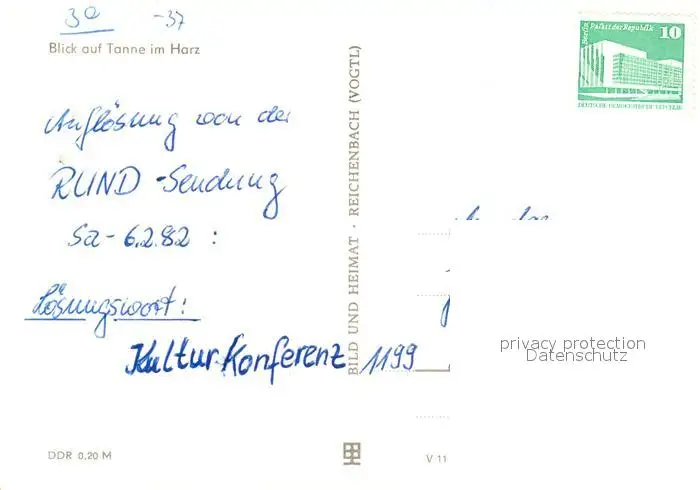 30 -37
Blick auf Tanne im Harz
Auflösung von der
RUND-Sendung
Sa-6.2.82 :
Lösungswort:
Kultur.Konferenz
BILD UND HEIMAT · REICHENBACH (VOGTL)
Berlin Palast der Republik
10
DEUTSCHE DEMOKRATISCHE REPUBLIK
An das
1199
privacy protection
Datenschutz
DDR 0,20 M
V 11